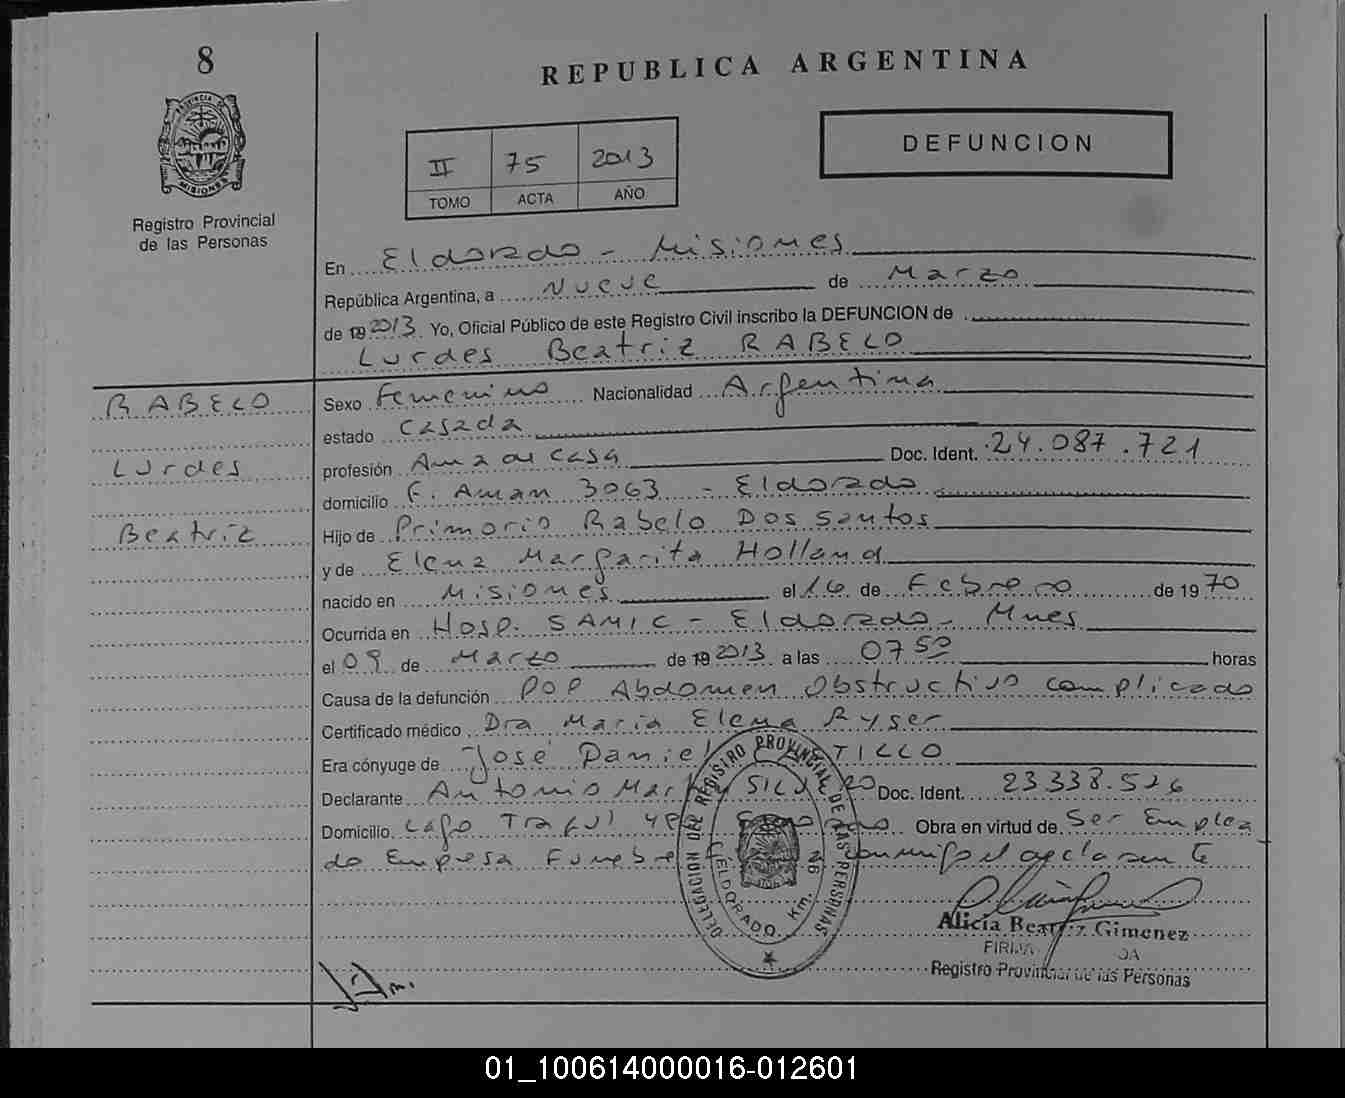 8
REPUBLICA ARGENTINA
PROVINCIA DE
MISIONES
Registro Provincial
de las Personas
II 75 2013
TOMO ACTA AÑO
DEFUNCION
En Eldorado - Misiones
República Argentina, a Nueve de Marzo
de 19 2013. Yo, Oficial Público de este Registro Civil inscribo la DEFUNCION de
Lurdes Beatriz RABELO
RABELO
Lurdes
Beatriz
Sexo Femenino Nacionalidad Argentina
estado Casada
profesión Ama de casa Doc. Ident. 24.087.721
domicilio F. Aman 3063 - Eldorado
Hijo de Primorio Rabelo Dos Santos
y de Elena Margarita Holland
nacido en Misiones el 16 de Febrero de 1970
Ocurrida en Hosp. SAMIC - Eldorado - Mnes
el 09 de Marzo de 19 2013 a las 07 50 horas
Causa de la defunción POP Abdomen Obstructivo complicado
Certificado médico Dra Maria Elena Ryser
Era cónyuge de José Daniel TILLO
Declarante Antonio Doc. Ident. 23.338.526
Domicilio Lago Obra en virtud de Ser Emplea
do Empresa Funebre
DELEGACION DEL REGISTRO PROVINCIAL DE LAS PERSONAS
ELDORADO Km.
Alicia Beatriz Gimenez
Registro Provincial de las Personas
01_100614000016-012601